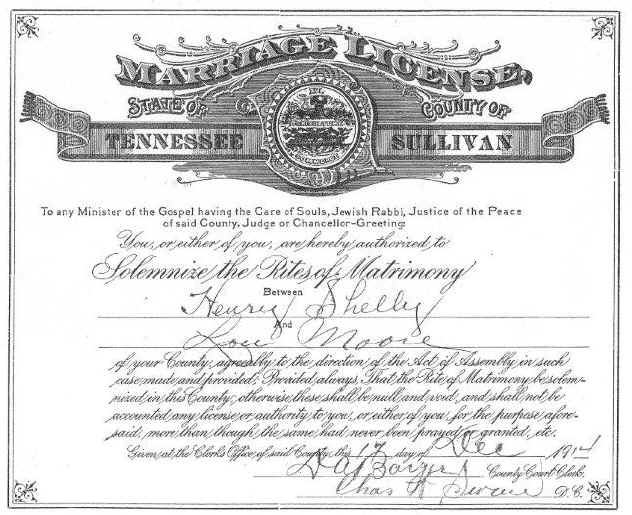 MARRIAGE LICENSE,
STATE OF COUNTY OF
TENNESSEE SULLIVAN
To any Minister of the Gospel having the Care of Souls, Jewish Rabbi, Justice of the Peace
of said County, Judge or Chancellor-Greeting:
You, or either of you, are hereby authorized to
Solemnize the Rites of Matrimony
Between
Henry Shelley
And
Lou Moore
of your County, agreeably to the direction of the Act of Assembly in such
case made and provided; Provided always, That the Rite of Matrimony be solem-
nized in this County; otherwise these shall be null and void, and shall not be
accounted any license or authority to you, or either of you, for the purpose afore-
said, more than though the same had never been prayed or granted, etc.
Given at the Clerk's Office of said County, this 17 day of Dec 1914
County Court Clerk.
Chas D. C.